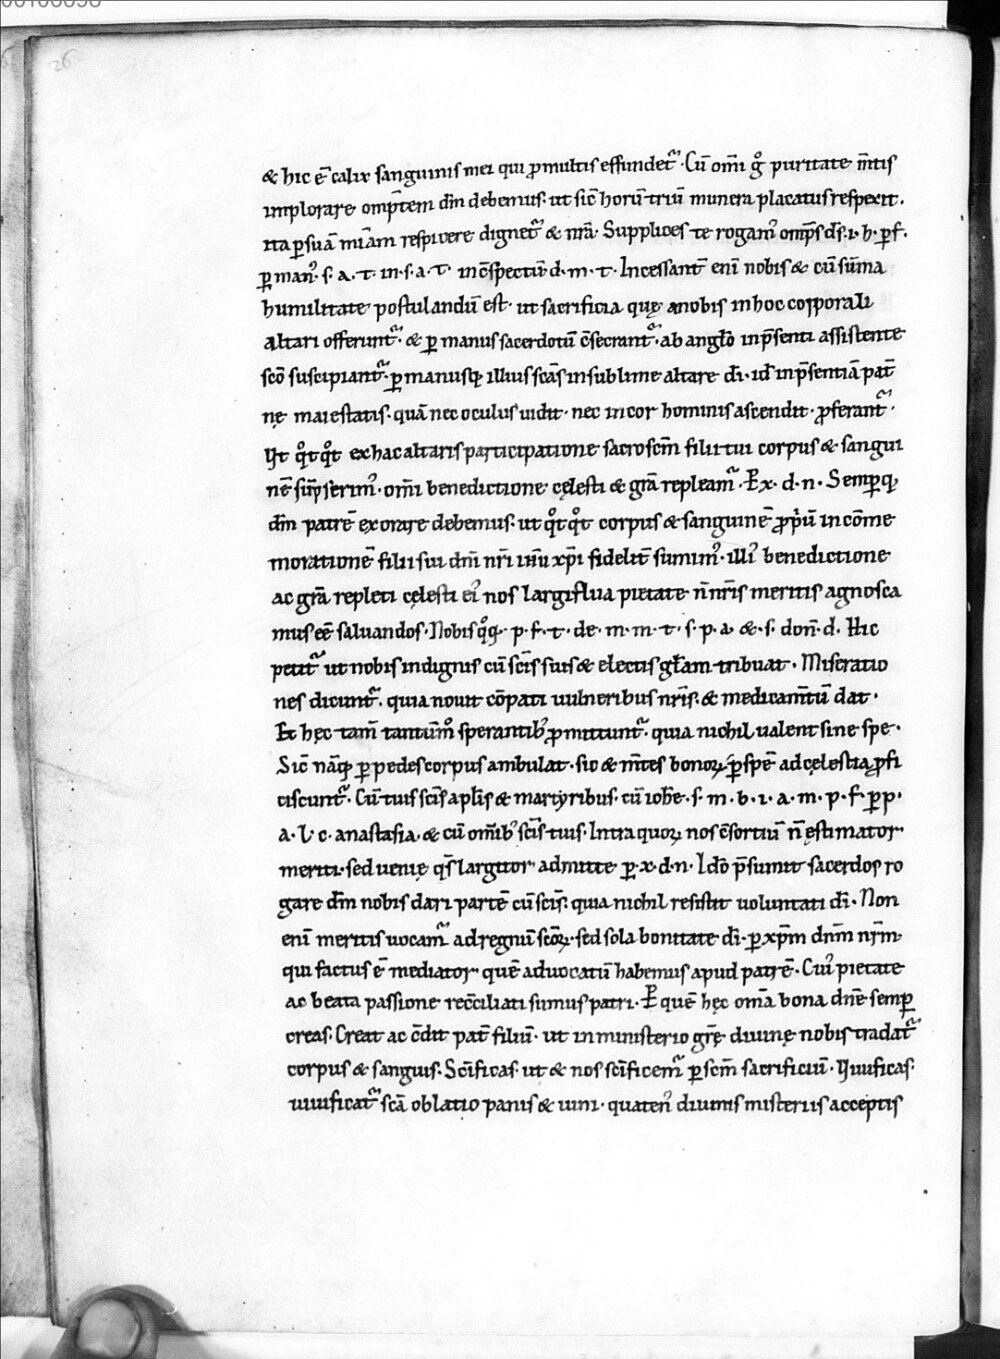 & hic ē calix sanguinis mei qui ꝓ multis effundet᷑. Cū om̄i gͦ puritate m̄tis
implorare omp̄tem dm̄ debemus. ut sic̄ horū triū munera placatus respexit.
ita ꝑ suā mīam respicere dignet᷑ & nr̄a. Supplices te rogamꝰ omp̄s ds̄. i. h. ꝑf.
ꝑ manꝰ. s. a. t. in. s. a. t. in c̄spectu d. m. t. Incessant̄ eni nobis & cū sūma
humilitate postulandū est. ut sacrificia quę a nobis in hoc corporali
altari offerunt᷑. & ꝑ manus sacerdotū c̄secrant᷑. ab angl̄o in p̄senti assistente
scō suscipiant᷑. ꝑ manusq; illius scās in sublime altare di. id in p̄sentiā pat̄
nę maiestatis. quā nec oculus uidit. nec in cor hominis ascendit. ꝓferant᷑.
Ut qͦt qͦt ex hac altaris participatione sacroscm̄ filii tui corpus & sangui
nē sūpserimꝰ. om̄i benedictione cęlesti & grā repleam᷑. P̱ x. d. n. Semꝑq;
dm̄ patrē exorare debemus. ut qͦt qͦt corpus & sanguinē ꝓpriū in cōme
morationē filii sui dn̄i nr̄i ihū xp̄i fidelit̄ sumimꝰ. illiꝰ benedictione
ac grā repleti cęlesti eiꝰ nos largiflua pietate n̄ nr̄is meritis agnosca
mus eē saluandos. Nobis qͦq;. p. f. t. de. m. m. t. s. p. a. &. s. don̄. d. Hic
petit᷑ ut nobis indignis cū scīs suis & electis gl̄am tribuat. Miseratio
nes dicunt᷑. quia nouit cōpati uulneribus nr̄is. & medicam̄tū dat.
Et hęc tam̄ tantūmͦ sperantibꝰ ꝓmittunt᷑. quia nichil ualent sine spe.
Sic̄ nāq; ꝑ pedes corpus ambulat. sic & m̄tes bonoꝝ ꝑ spē ad cęlestia ꝓfi
ciscunt᷑. Cū tuis scīs apl̄is & martyribus. cū ioh̄e. s. m. b. i. a. m. p. f. ꝑp.
a. l. c. anastasia. & cū om̄ibꝰ scīs tuis. Intra quoꝝ nos c̄sortiū n̄ ęstimator
meriti. sed uenię qs̄ largitor admitte ꝑ. x. d. n. Idō p̄sumit sacerdos ro
gare dm̄ nobis dari partē cū scīs. quia nichil resistit uoluntati di. Non
eni meritis uocam᷑ ad regnū scōꝝ. sed sola bonitate di. ꝑ xp̄m dn̄m nr̄m.
qui factus ē mediator. quē aduocatū habemus apud patrē. Cuiꝰ pietate
ac beata passione rec̄ciliati sumus patri. P̱ quē hęc om̄a bona dn̄e semꝑ
creas. Creat ac c̄dit pat̄ filiū. ut in ministerio grę̄ diuinę nobis tradat᷑
corpus & sanguis. Sc̄ificas. ut & nos sc̄ificem᷑ ꝑ scm̄ sacrificiū. Uiuificas.
uiuificat᷑ scā oblatio panis & uini. quatenꝰ diuinis misteriis acceptis